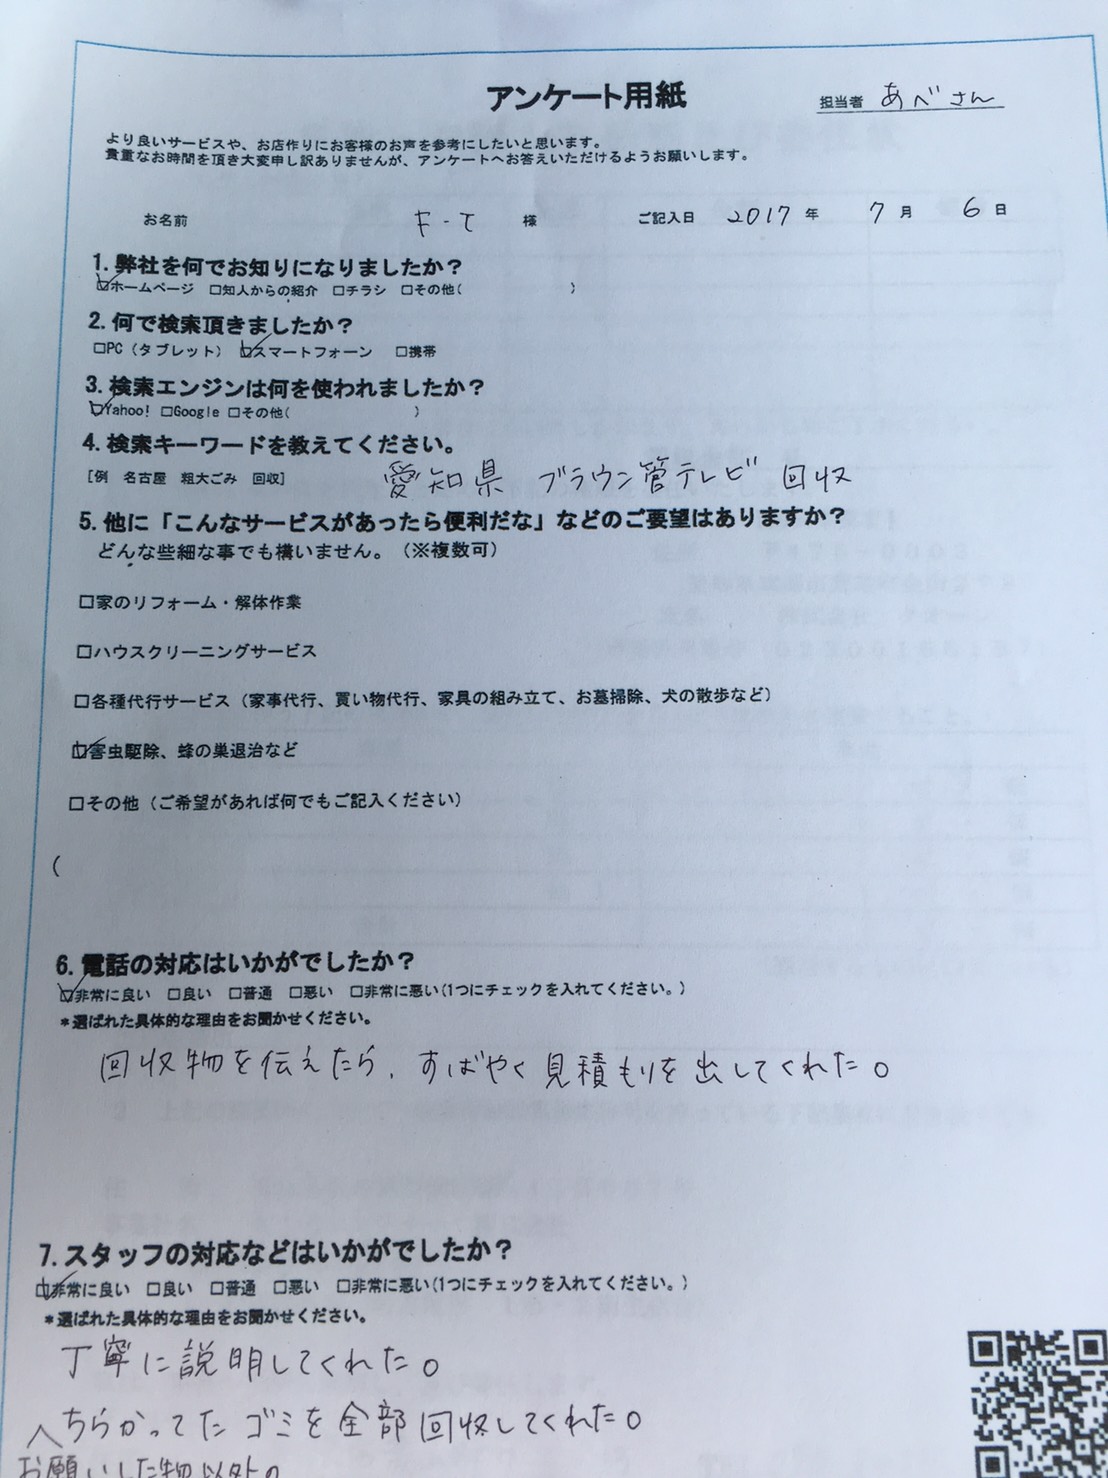 アンケート用紙
担当者 あべさん
より良いサービスや、お店作りにお客様のお声を参考にしたいと思います。
貴重なお時間を頂き大変申し訳ありませんが、アンケートへお答えいただけるようお願いします。
お名前 F-T 様 ご記入日 2017 年 7 月 6 日
1. 弊社を何でお知りになりましたか？
☑ホームページ □知人からの紹介 □チラシ □その他( )
2. 何で検索頂きましたか？
□PC（タブレット） ☑スマートフォーン □携帯
3. 検索エンジンは何を使われましたか？
☑Yahoo! □Google □その他( )
4. 検索キーワードを教えてください。
[例 名古屋 粗大ごみ 回収] 愛知県 ブラウン管テレビ 回収
5. 他に「こんなサービスがあったら便利だな」などのご要望はありますか？
どんな些細な事でも構いません。（※複数可）
□家のリフォーム・解体作業
□ハウスクリーニングサービス
□各種代行サービス（家事代行、買い物代行、家具の組み立て、お墓掃除、犬の散歩など）
☑害虫駆除、蜂の巣退治など
□その他（ご希望があれば何でもご記入ください）
(
6. 電話の対応はいかがでしたか？
☑非常に良い □良い □普通 □悪い □非常に悪い(1つにチェックを入れてください。)
*選ばれた具体的な理由をお聞かせください。
回収物を伝えたら、すばやく見積もりを出してくれた。
7. スタッフの対応などはいかがでしたか？
☑非常に良い □良い □普通 □悪い □非常に悪い(1つにチェックを入れてください。)
*選ばれた具体的な理由をお聞かせください。
丁寧に説明してくれた。
ちらかってたゴミを全部回収してくれた。
お願いした物以外の